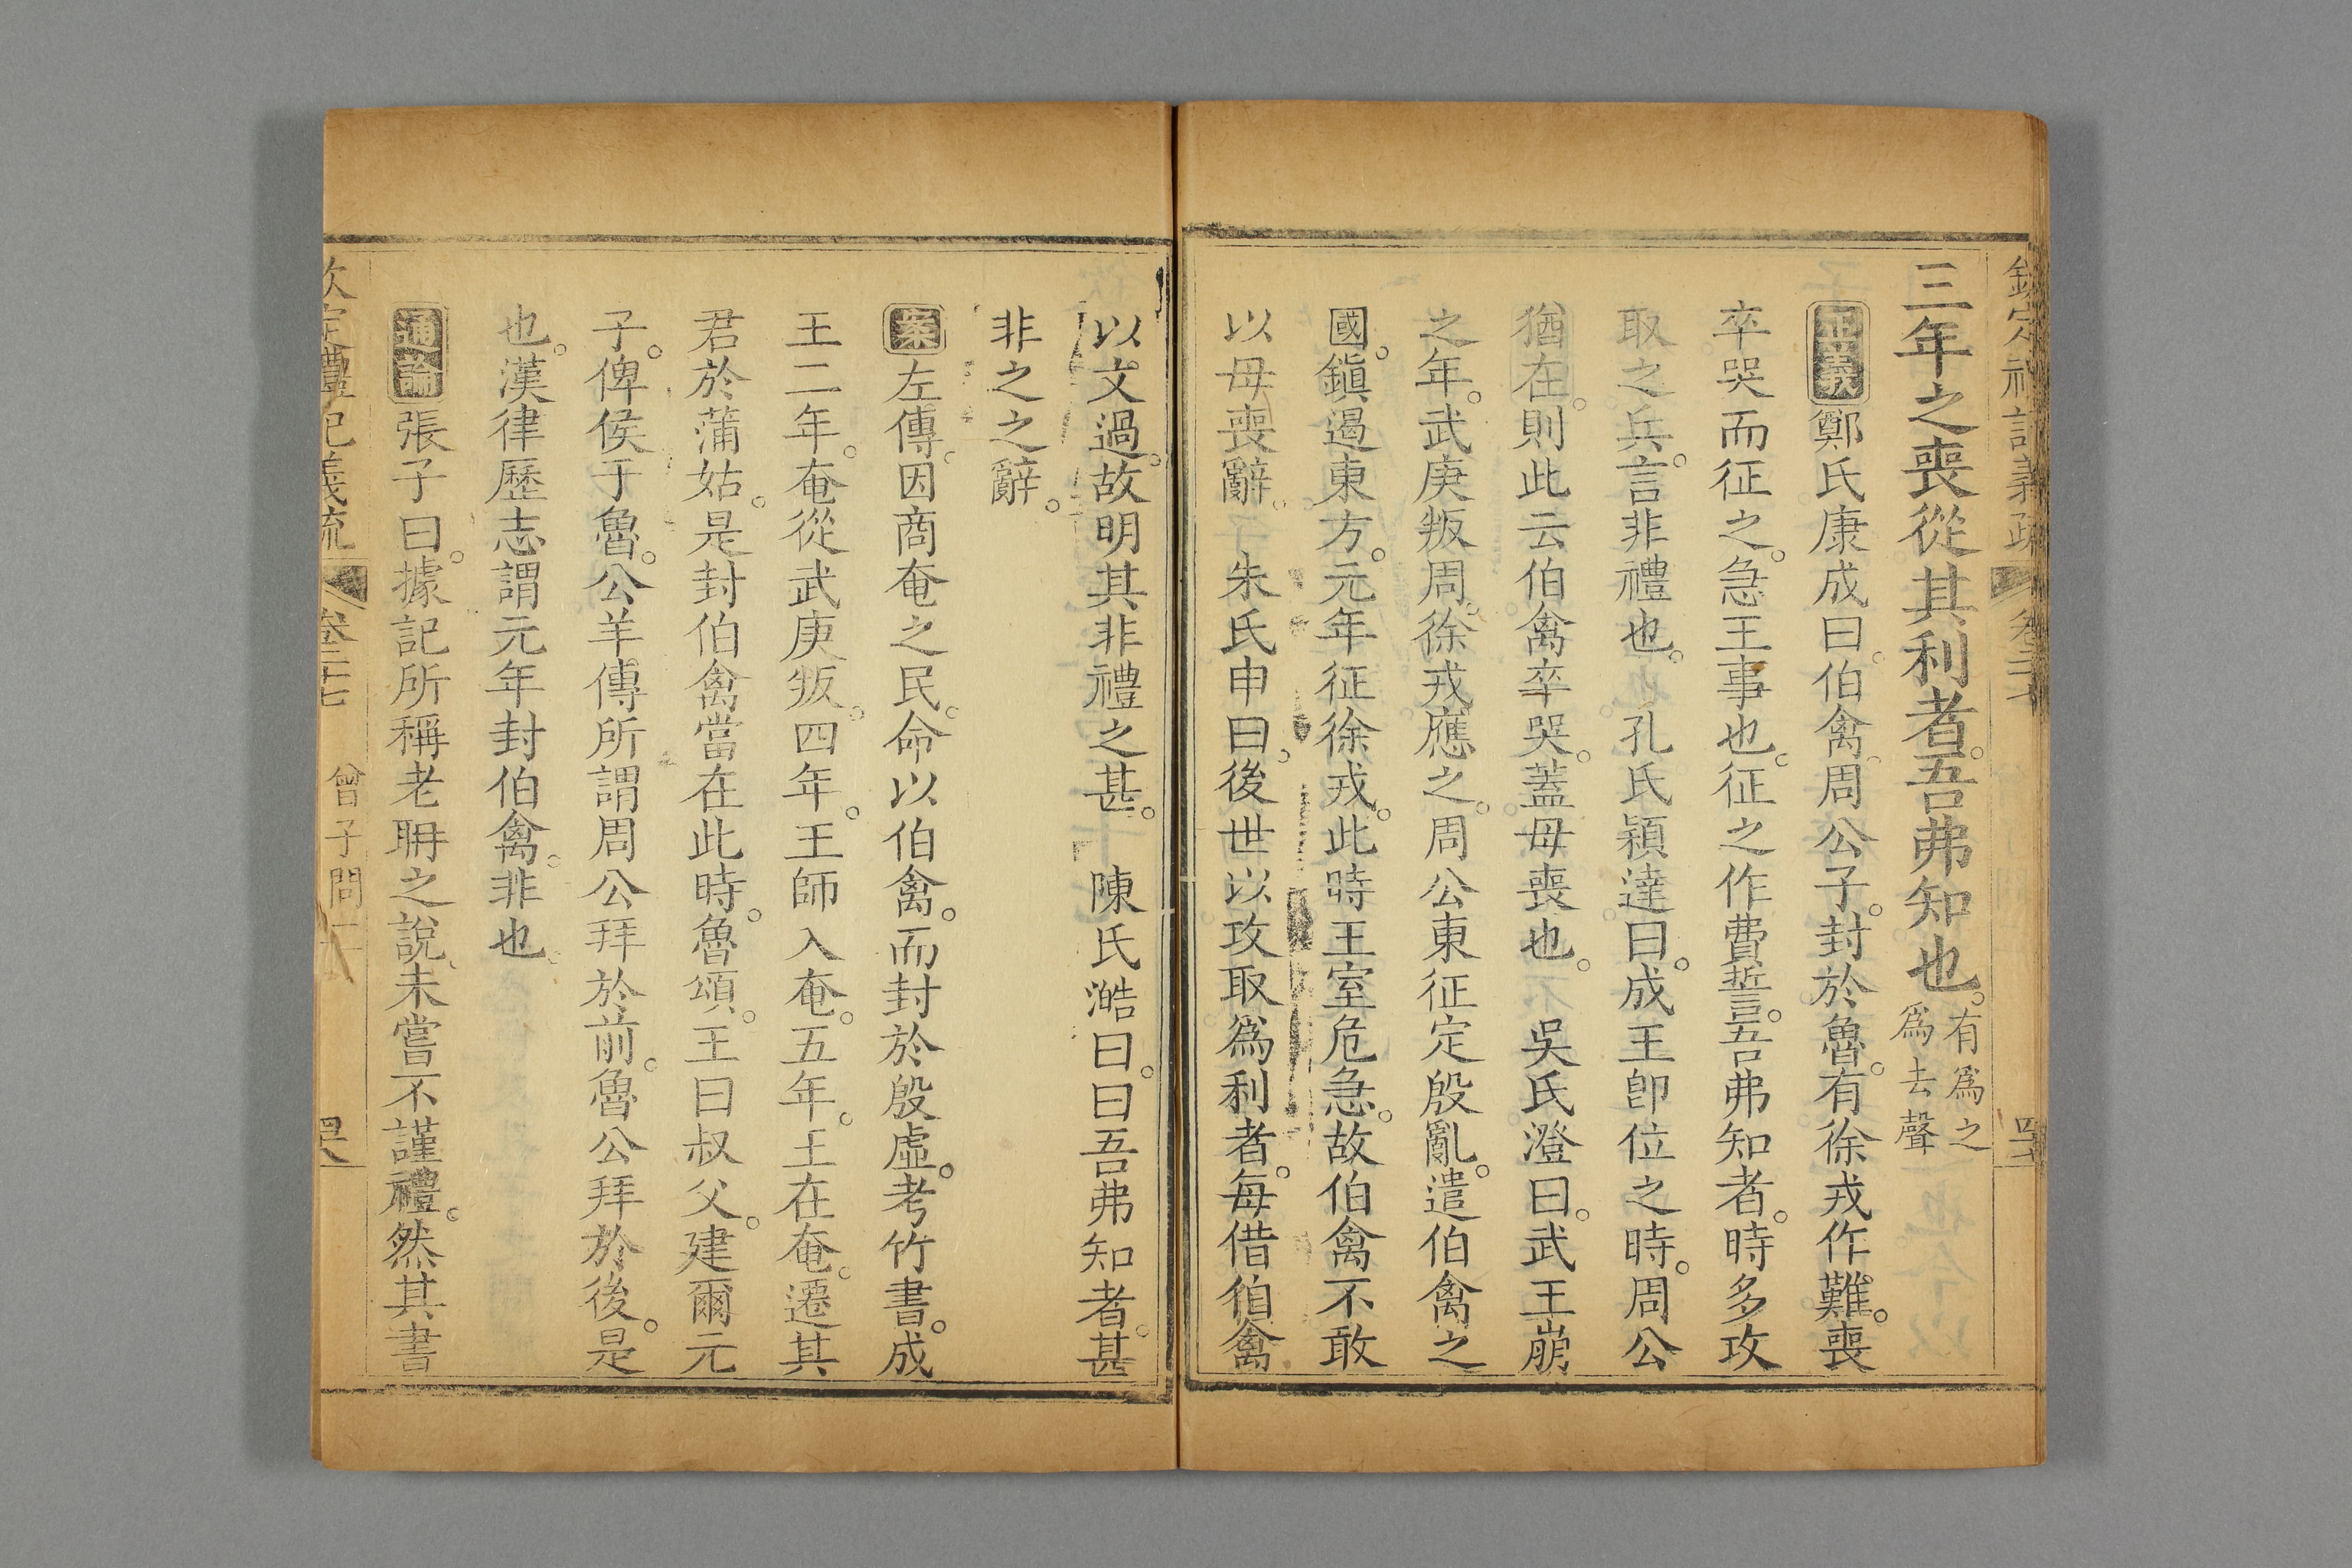 欽定禮記義疏 卷二十七
三年之喪從其利者。吾弗知也。有爲之爲去聲
正義 鄭氏康成曰。伯禽。周公子。封於魯。有徐戎作難。喪
卒哭而征之。急王事也。征之作費誓。吾弗知者。時多攻
取之兵。言非禮也。 孔氏穎達曰。成王卽位之時。周公
猶在。則此云伯禽卒哭。蓋母喪也。 吳氏澄曰。武王崩
之年。武庚叛周。徐戎應之。周公東征定殷亂。遣伯禽之
國。鎭遏東方。元年征徐戎。此時王室危急。故伯禽不敢
以母喪辭。 朱氏申曰。後世以攻取爲利者。每借伯禽
以文過。故明其非禮之甚。 陳氏澔曰。曰吾弗知者。甚
非之之辭。
案 左傳。因商奄之民。命以伯禽。而封於殷虛。考竹書。成
王二年。奄從武庚叛。四年。王師入奄。五年。王在奄。遷其
君於蒲姑。是封伯禽當在此時。魯頌。王曰叔父。建爾元
子。俾侯于魯。公羊傳所謂周公拜於前。魯公拜於後。是
也。漢律歷志謂元年封伯禽。非也。
通論 張子曰。據記所稱老聃之說。未嘗不謹禮。然其書
欽定禮記義疏 卷二十七 曾子問